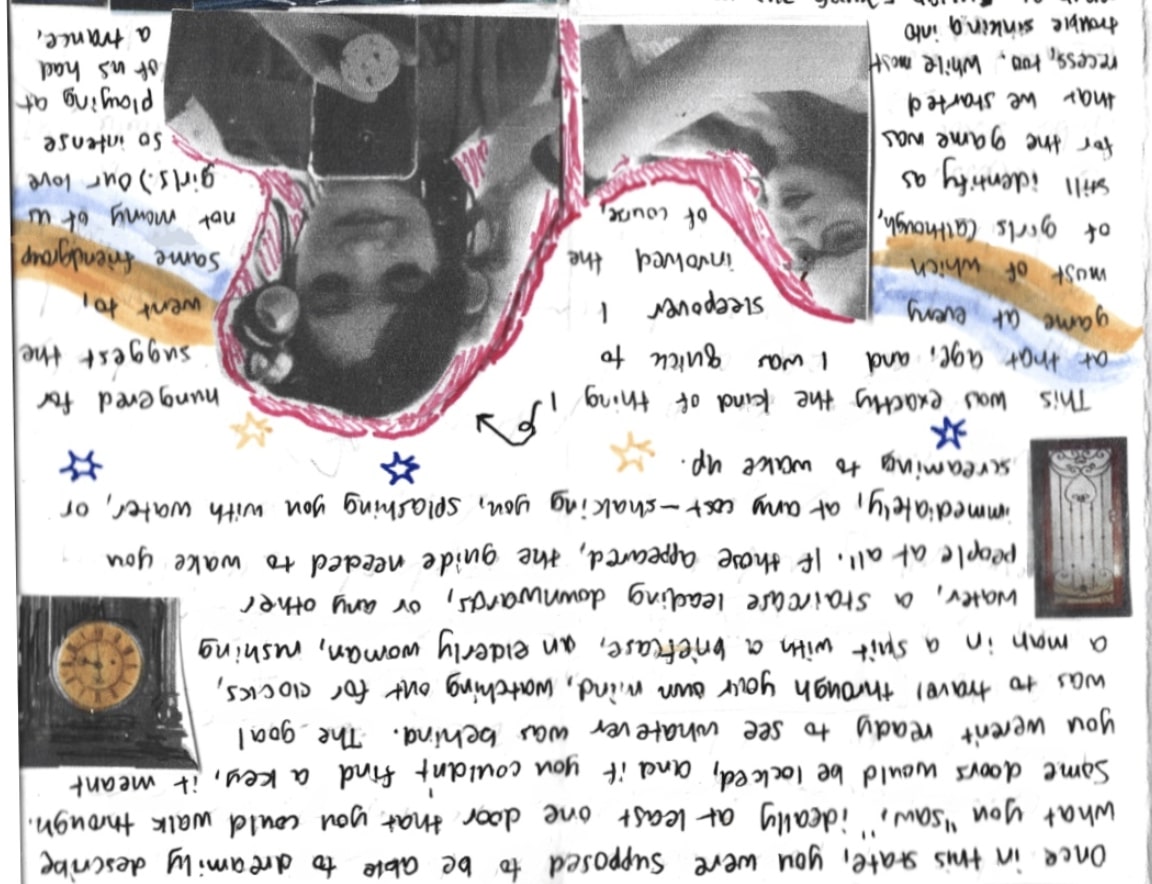 Once in this state, you were supposed to be able to dreamily describe
what you "saw," ideally at least one door that you could walk through.
Some doors would be locked, and if you couldn't find a key, it meant
you weren't ready to see whatever was behind. The goal
was to travel through your own mind, watching out for clocks,
a man in a suit with a briefcase, an elderly woman, rushing
water, a staircase leading downwards, or any other
people at all. If those appeared, the guide needed to wake you
immediately, at any cost - shaking you, splashing you with water, or
screaming to wake up.
This was exactly the kind of thing I hungered for
at that age, and I was quick to suggest the
game at every sleepover I went to,
most of which involved the same friendgroup
of girls (although, of course, not many of us
still identify as girls.) Our love
for the game was so intense
that we started playing at
recess, too. While most of us had
trouble sinking into a trance,